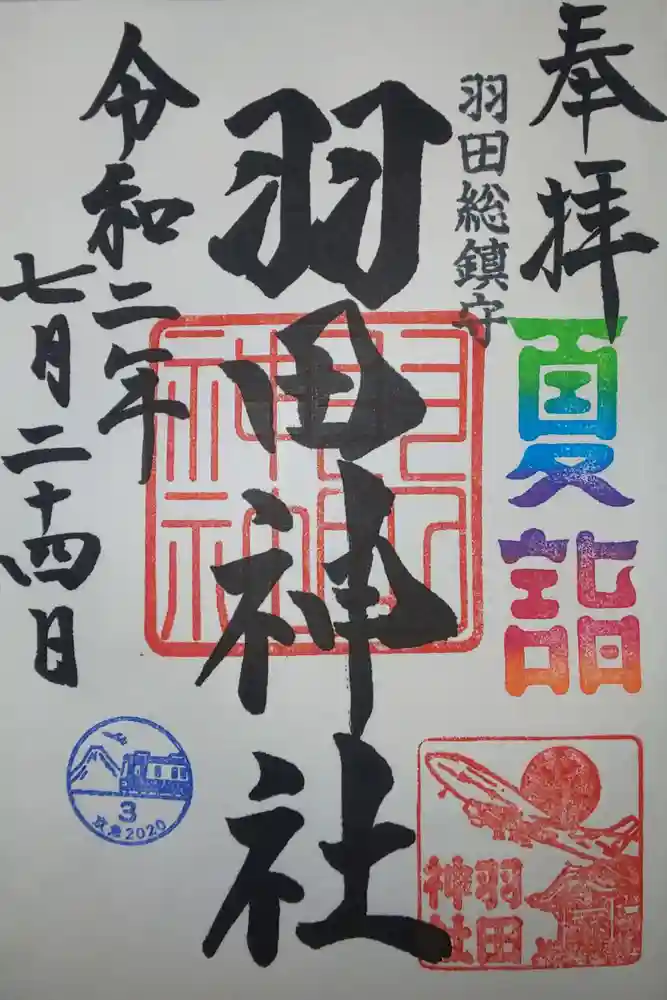 奉拝
羽田総鎮守
夏詣
羽田神社
羽田神社
令和二年
七月二十四日
3
京急2020
羽田
神社